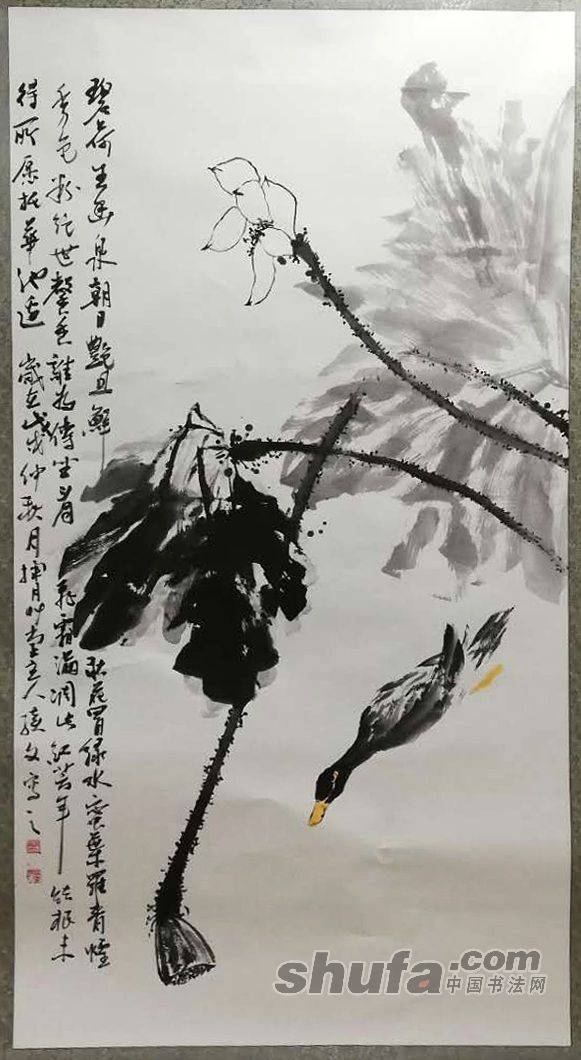 碧荷生幽泉朝日艷且鮮 秋花冒绿水密葉羅青煙
秀色粉绝世馨香誰为傳坐看 飛霜滿凋此红芳年 结根未
得所愿托華池边 歲在戊戌仲秋月 月草堂主人 文寫之
shufa.com
中国书法网